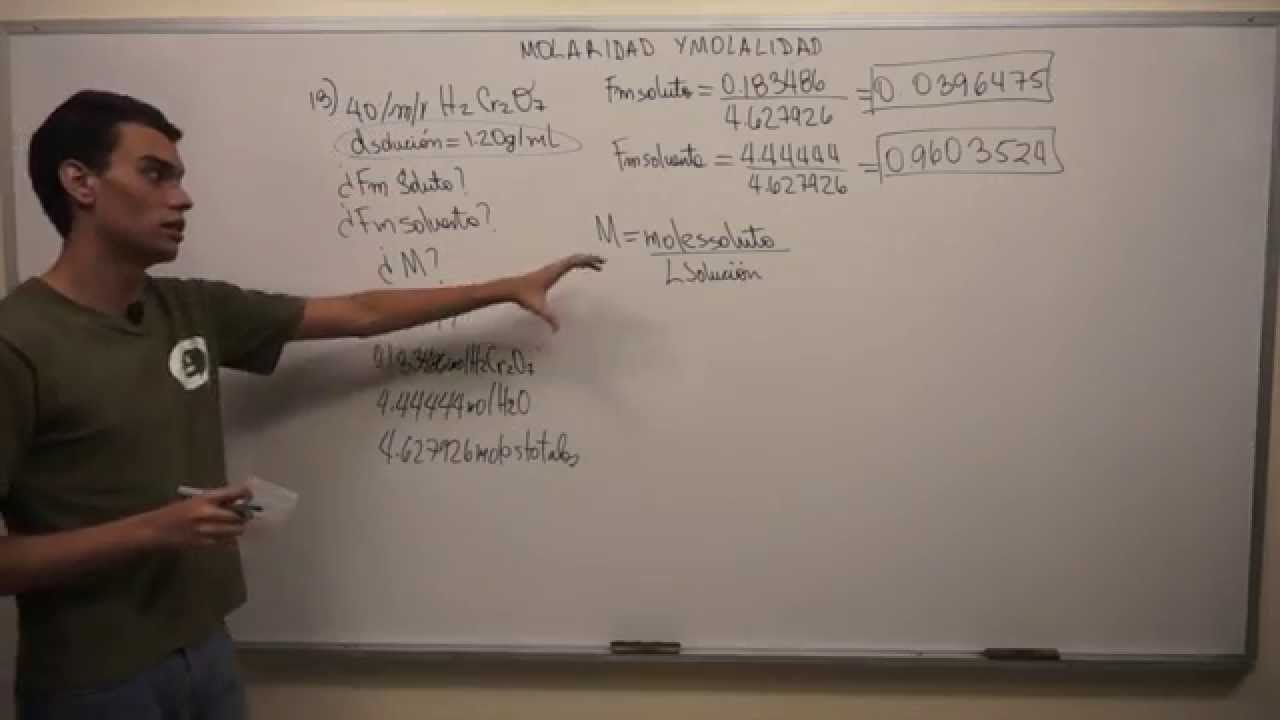 MOLARIDAD Y MOLALIDAD
13) 40/m/r H2Cr2O7
dsolución=1.20g/mL
¿Fm Soluto?
¿Fm solvente?
¿M?
0.183486mol H2Cr2O7
4.44444mol H2O
4.627926 moles totales
Fm soluto = 0.183486 / 4.627926 = 0.0396475
Fm solvente = 4.44444 / 4.627926 = 0.9603524
M = moles soluto / L Solución